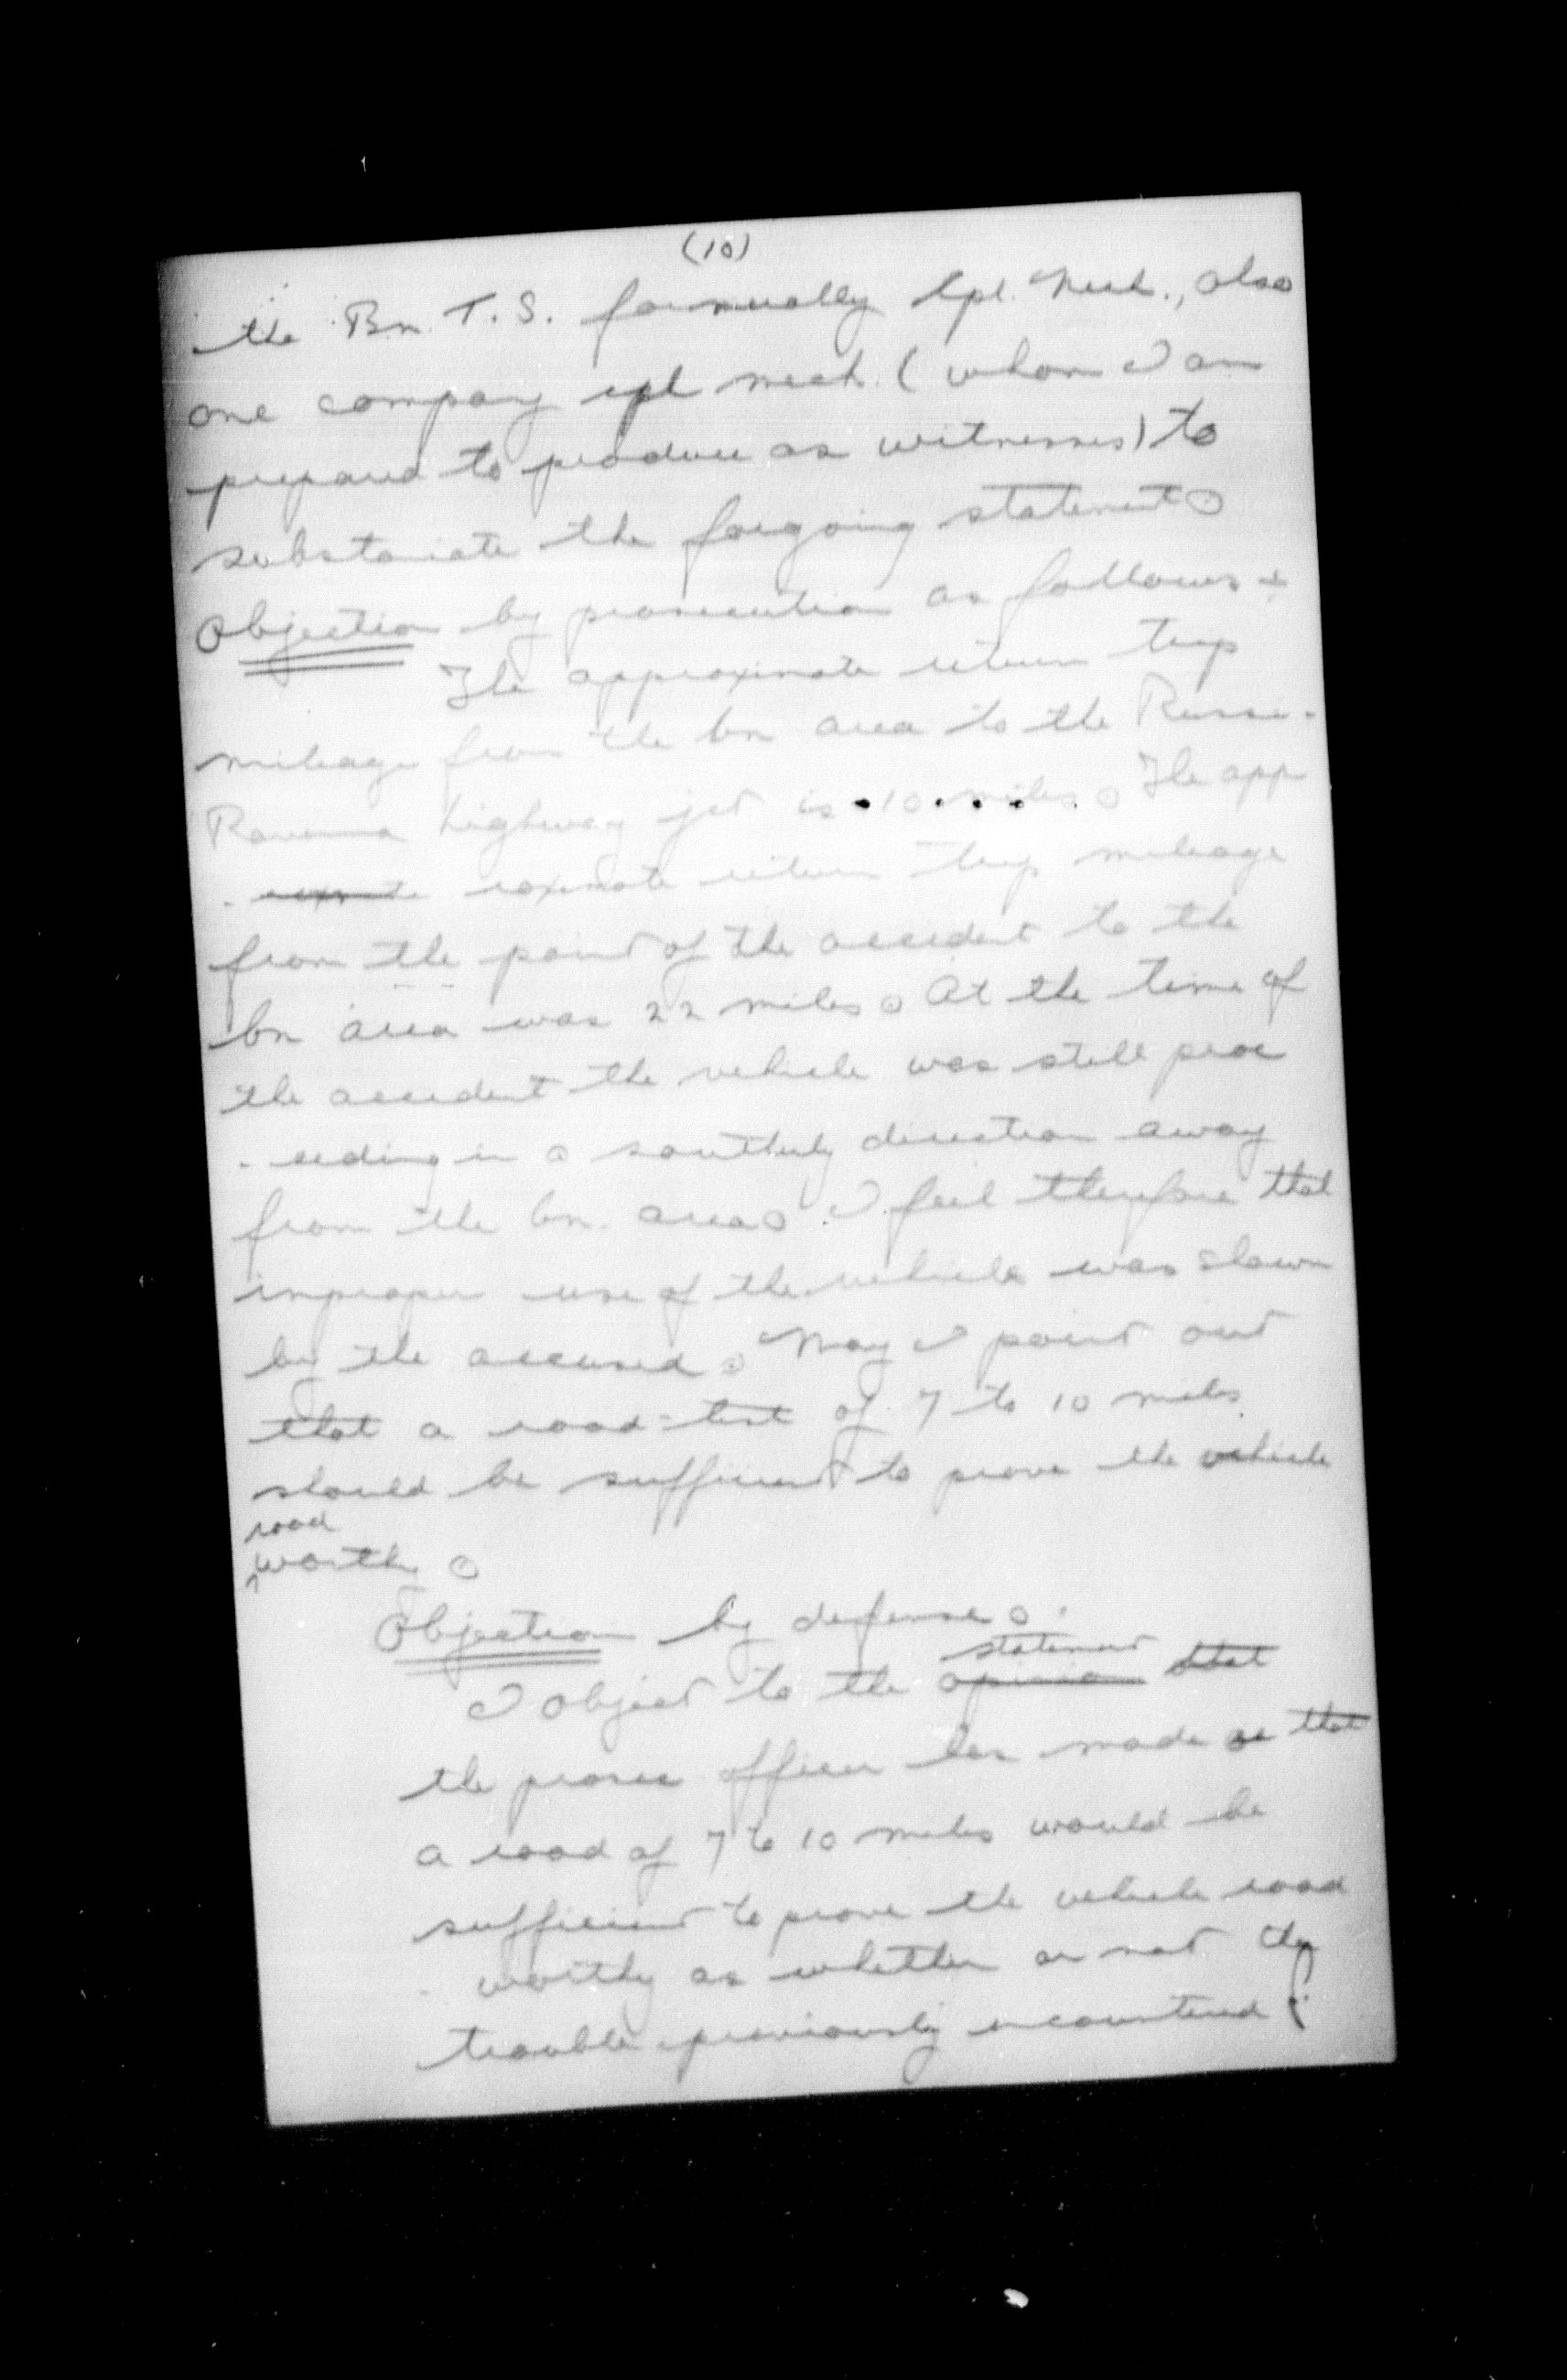 (10)
the Bn. T.S. formually Cpl. Mech., also
one company cpl mech. (whom I am
prepared to produce as witnesses) to
substaniate the forgoing statement.
Objection by prosecution as follows
The approximate return trip
mileage from the bn area to the Russi-
Ravenna highway jct is 10 miles. The app
- roximate return trip mileage
from the point of the accident to the
bn area was 22 miles. At the time of
the accident the vehicle was still proc
- eeding in a southerly direction away
from the bn. area. I feel therefore that
improper use of the vehicle was shown
by the accused. May I point out
that a road-test of 7 to 10 miles
should be sufficient to prove the vehicle
road
worth.
Objection by defense.
statement
I object to the opinion that
the prosec officer has made that
a road of 7 to 10 miles would be
sufficient to prove the vehicle road
- worthy as whether or not the
trouble previously encountered